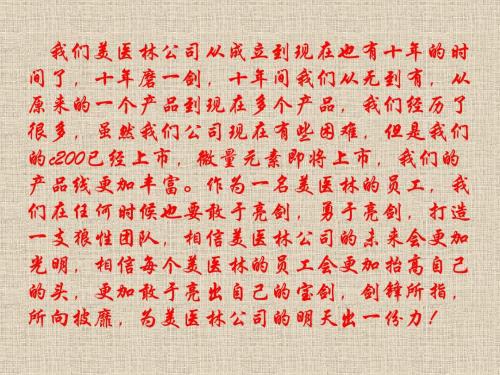 我们美医林公司从成立到现在也有十年的时
间了，十年磨一剑，十年间我们从无到有，从
原来的一个产品到现在多个产品，我们经历了
很多，虽然我们公司现在有些困难，但是我们
的c200已经上市，微量元素即将上市，我们的
产品线更加丰富。作为一名美医林的员工，我
们在任何时候也要敢于亮剑，勇于亮剑，打造
一支狼性团队，相信美医林公司的未来会更加
光明，相信每个美医林的员工会更加抬高自己
的头，更加敢于亮出自己的宝剑，剑锋所指，
所向披靡，为美医林公司的明天出一份力！